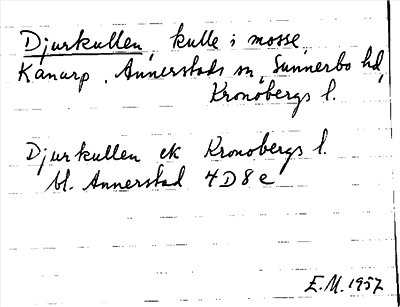 Djurkullen, kulle i mosse,
Kånarp, Annerstads sn, Sunnerbo hd,
Kronobergs l.
Djurkullen ek Kronobergs l.
bl. Annerstad 4D8e
E.M. 1957